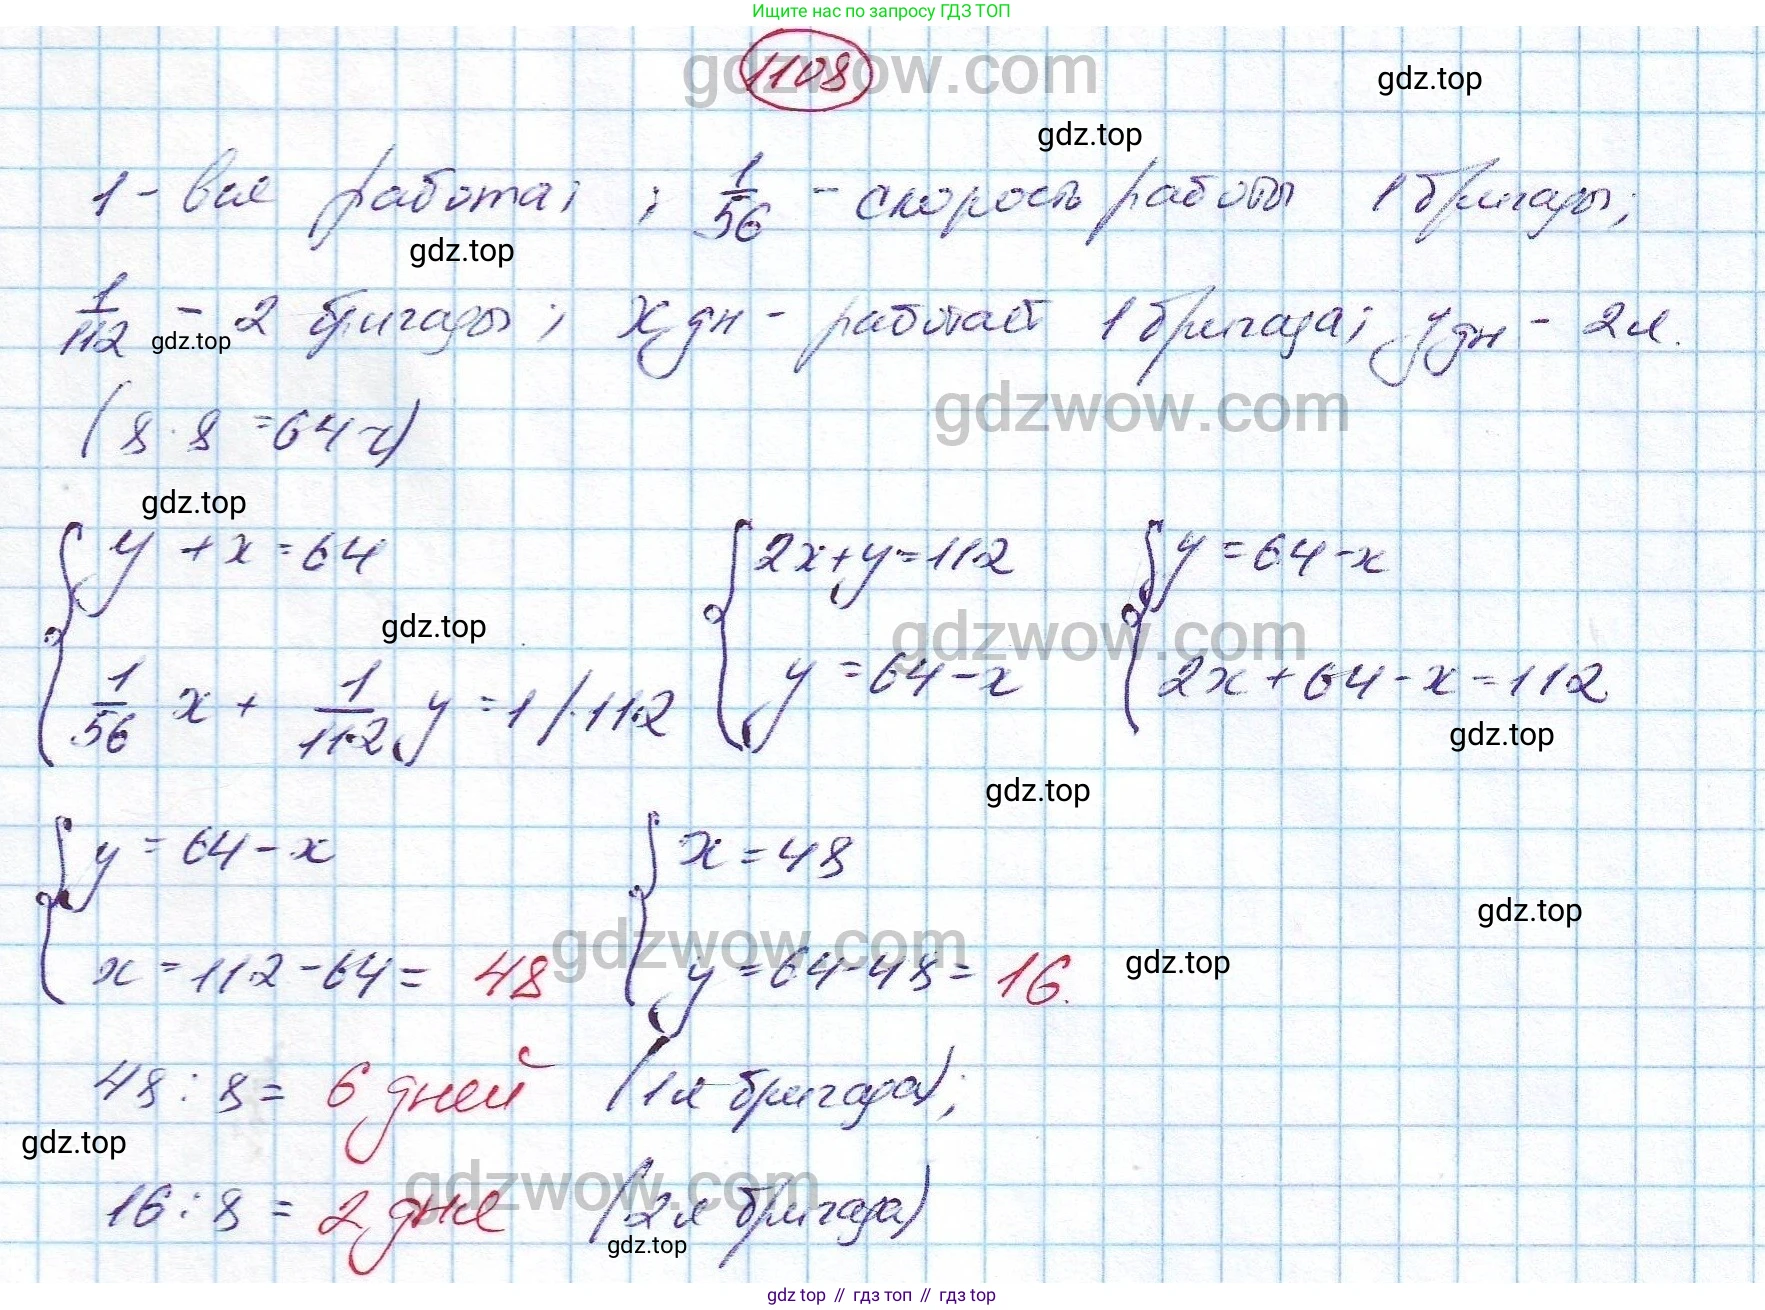 Ищите нас по запросу ГДЗ ТОП
1108
gdzwow.com
gdz.top
gdz.top
1 - вся работа; ; 1/56 - скорость работы 1 бригады;
gdz.top
1/112 - 2 бригады; x дн - работает 1 бригада; y дн - 2я.
gdz.top
gdzwow.com
(8 · 8 = 64 ч)
gdz.top
{ y + x = 64 { 2x + y = 112 { y = 64 - x
gdz.top
gdzwow.com
1/56 x + 1/112 y = 1 / · 112 y = 64 - x 2x + 64 - x = 112
gdz.top
gdz.top
{ y = 64 - x { x = 48
gdz.top
gdzwow.com
x = 112 - 64 = 48 y = 64 - 48 = 16.
gdz.top
48 : 8 = 6 дней (1я бригада);
gdz.top
gdzwow.com
16 : 8 = 2 дня (2я бригада)
gdz.top
gdz top // гдз топ // гдз top